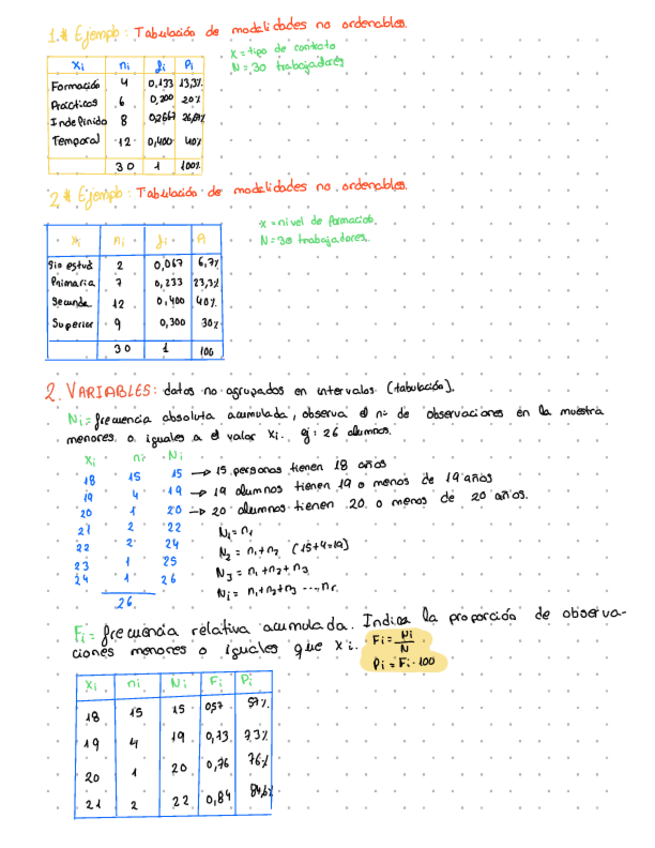 1.# Ejemplo: Tabulación de modalidades no ordenables.
x = tipo de contrato
N = 30 trabajadores
xi ni fi Pi
Formación 4 0,133 13,3%
Prácticas 6 0,200 20%
Indefinido 8 0,2667 26,67%
Temporal 12 0,400 40%
30 1 100%
2.# Ejemplo: Tabulación de modalidades no ordenables.
x = nivel de formación.
N = 30 trabajadores.
xi ni fi Pi
Sin estud 2 0,067 6,7%
Primaria 7 0,233 23,3%
Secunda 12 0,400 40%
Superior 9 0,300 30%
30 1 100
2. VARIABLES: datos no agrupados en intervalos (tabulación).
Ni = frecuencia absoluta acumulada, observa el nº de observaciones en la muestra
menores o iguales a el valor xi. ej: 26 alumnos.
xi ni Ni
18 15 15 → 15 personas tienen 18 años
19 4 19 → 19 alumnos tienen 19 o menos de 19 años
20 1 20 → 20 alumnos tienen 20 o menos de 20 años.
21 2 22 N1 = n1
22 2 24 N2 = n1+n2 (15+4=19)
23 1 25 N3 = n1+n2+n3
24 1 26 Ni = n1+n2+n3 ...., nr.
26.
Fi = frecuencia relativa acumulada. Indica la proporción de observa-
ciones menores o iguales que xi. Fi = Ni/N
Pi = Fi · 100
xi ni Ni Fi Pi
18 15 15 0,57 57%
19 4 19 0,73 73%
20 1 20 0,76 76%
21 2 22 0,84 84,6%